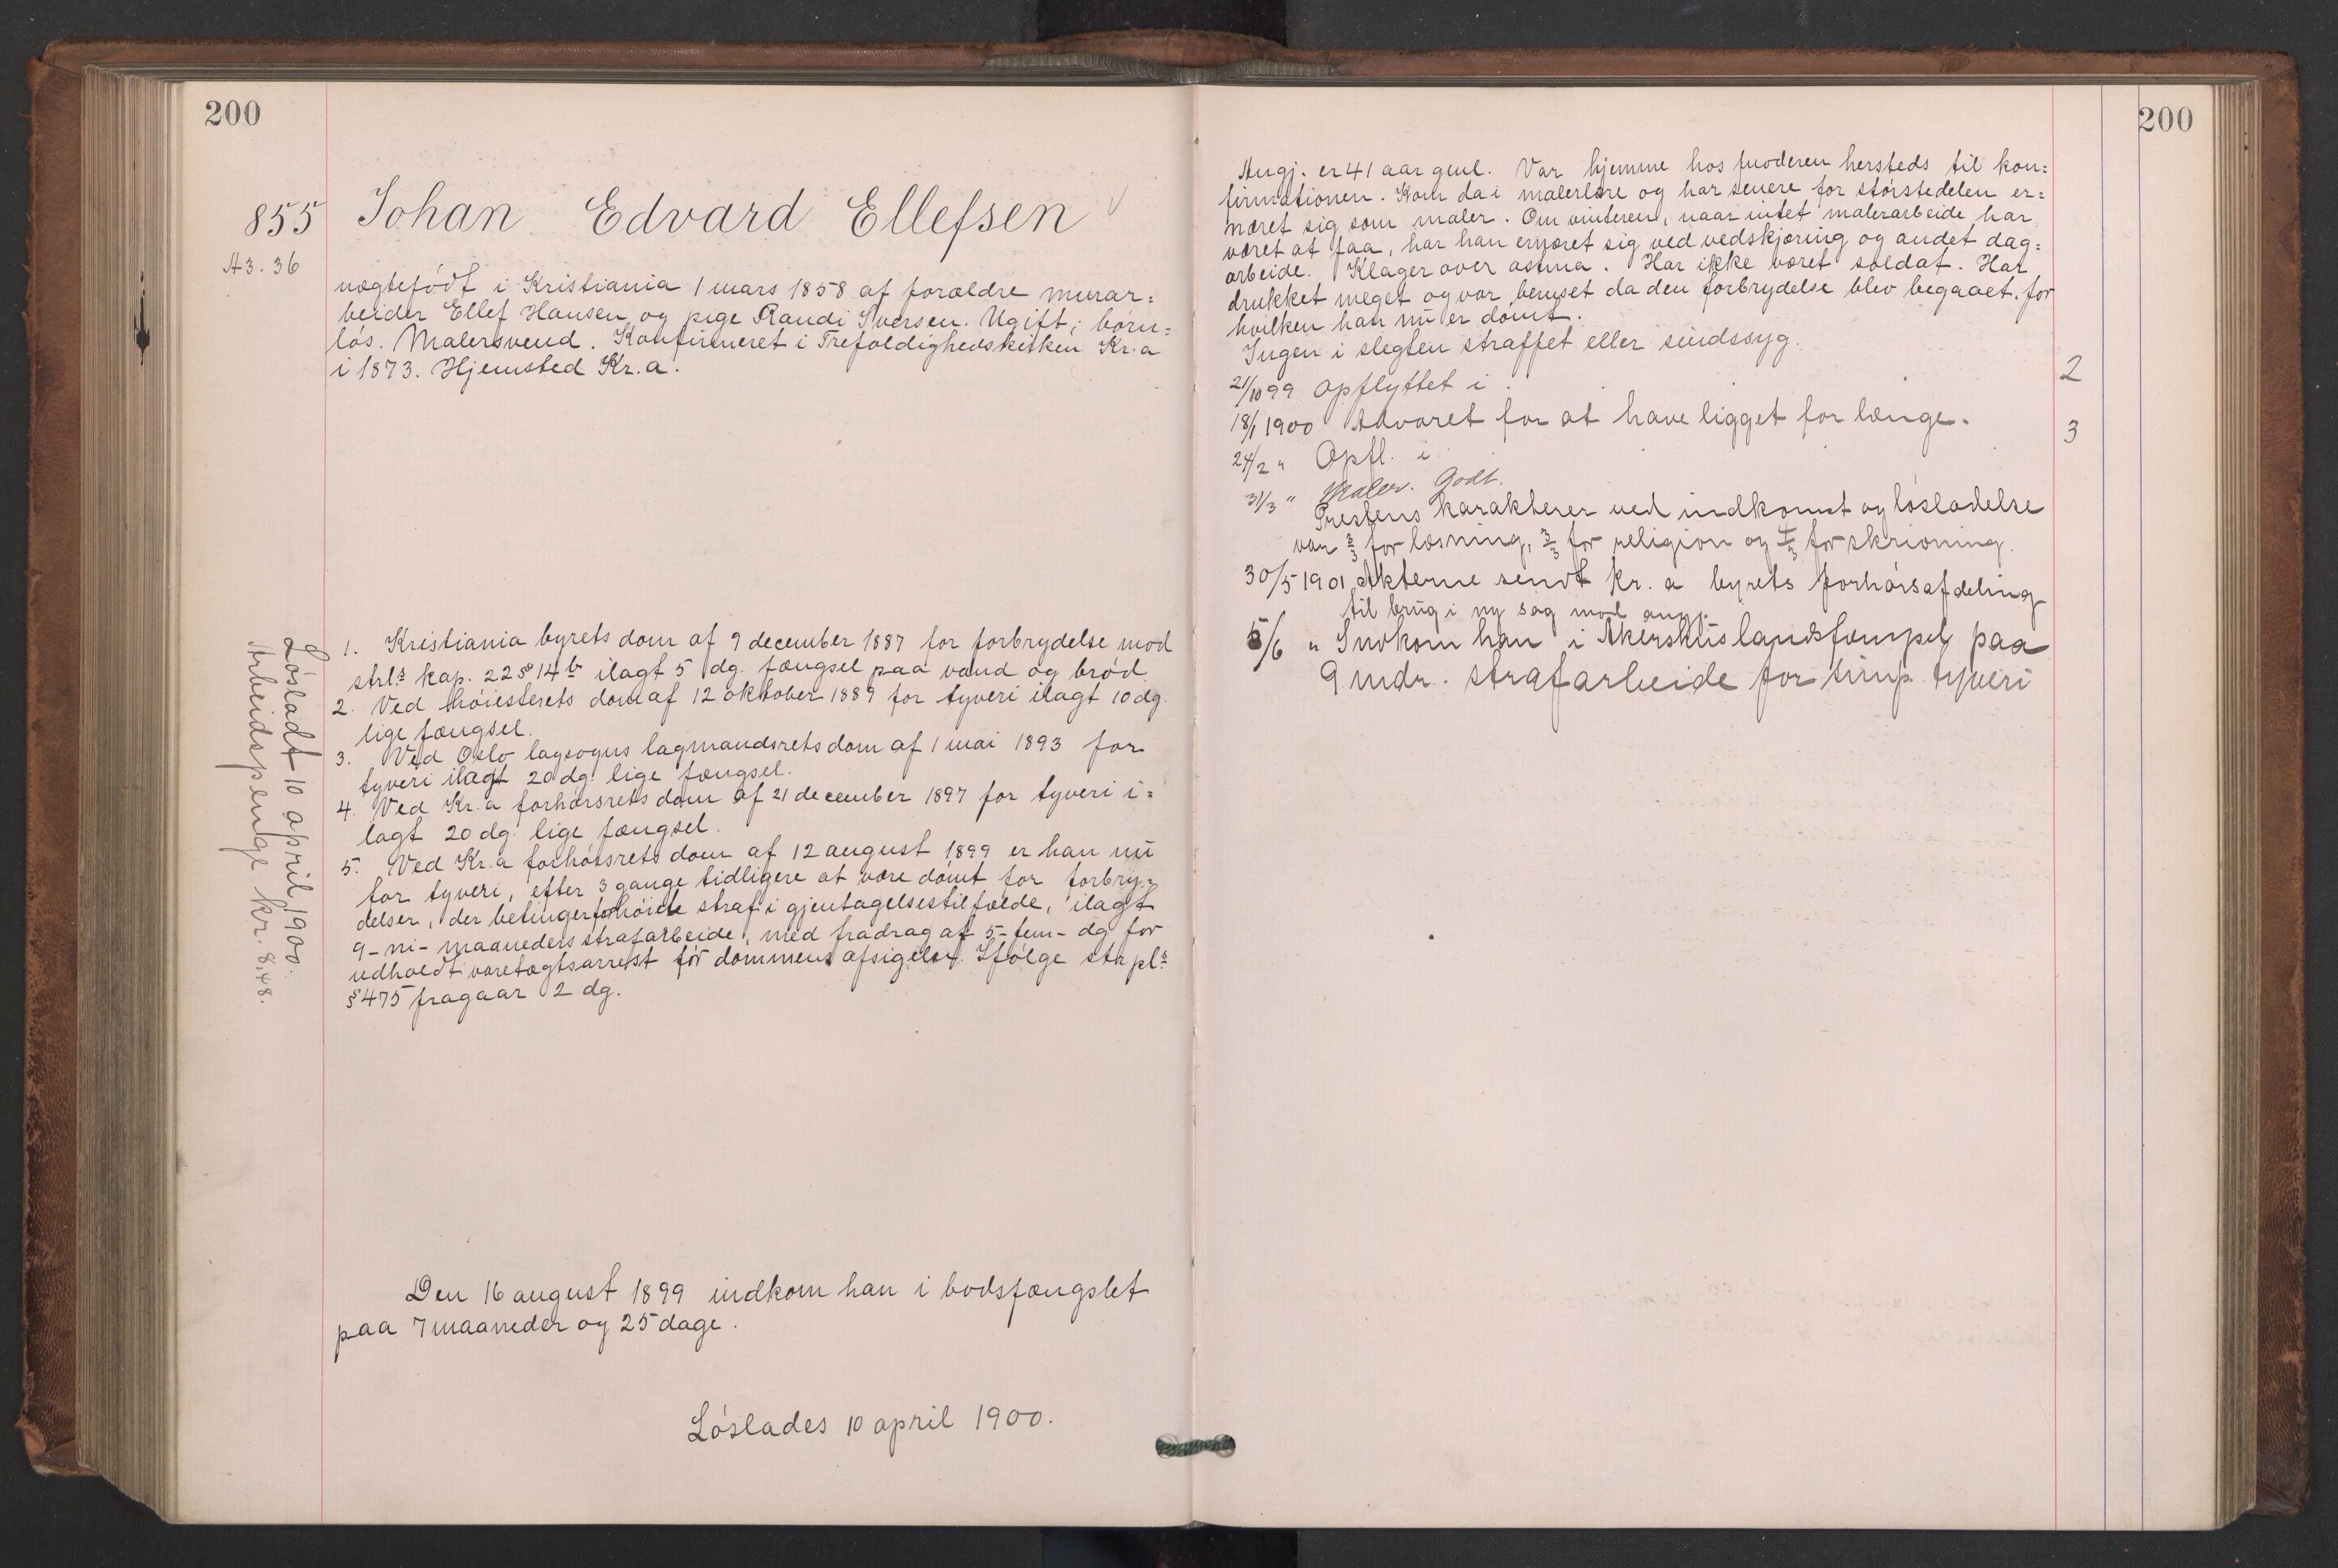 200
855
A3. 36
Johan Edvard Ellefsen
uægtefödt i Kristiania 1 mars 1858 af forældre murar=
beider Ellef Hansen og pige Randi Iversen. Ugift; börn=
lös. Malersvend. Konfirmeret i Trefoldighedskirken Kr.a
i 1873. Hjemsted Kr.a.
1. Kristiania byrets dom af 9 december 1887 for forbrydelse mod
strls kap. 22 § 14 b ilagt 5 dg. fængsel paa vand og brød.
2. Ved höiesterets dom af 12 oktober 1889 for tyveri ilagt 10 dg.
lige fængsel.
3. Ved Oslo lagsogns lagmandsrets dom af 1 mai 1893 for
tyveri ilagt 20 dg. lige fængsel.
4. Ved Kr.a forhörsrets dom af 21 december 1897 for tyveri i=
lagt 20 dg. lige fængsel.
5. Ved Kr.a forhörsrets dom af 12 august 1899 er han nu
for tyveri, efter 3 gange tidligere at være dömt for forbry=
delser, der betinger forhöiete straf i gjentagelsestilfælde, ilagt
9 - ni - maaneders strafarbeide, med fradrag af 5 - fem - dg for
udholdt varetægtsarrest för dommens afsigelse. Ifölge strpls
§ 475 fragaar 2 dg.
Lösladt 10 april 1900.
Arbeidspenge kr. 8,48.
Den 16 august 1899 indkom han i bodsfængslet
paa 7 maaneder og 25 dage.
Löslades 10 april 1900.
200
Angj. er 41 aar gml. Var hjemme hos moderen hersteds til kon=
firmationen. Kom da i malerlære og har senere for störstedelen er=
næret sig som maler. Om vinteren, naar intet malerarbeide har
været at faa, har han ernæret sig ved vedskjæring og andet dag=
arbeide. Klager over astma. Har ikke været soldat. Har
drukket meget og var beruset da den forbrydelse blev begaaet, for
hvilken han nu er dömt.
Ingen i slegten straffet eller sindssyg.
21/10 99 Opflyttet i 2
18/1 1900 Advaret for at have ligget for længe.
24/2 " Opfl. i 3
31/3 " Maler. Godt.
Prestens karakterer ved indkomst og lösladelse
var 3/3 for læsning, 3/3 for religion og 4/3 for skrivning.
30/5 1901 Akterne sendt Kr.a byrets forhörsafdeling
til brug i ny sag mod angj.
5/6 " Indkom han i Akershus landsfængsel paa
9 mdr. strafarbeide for simp. tyveri